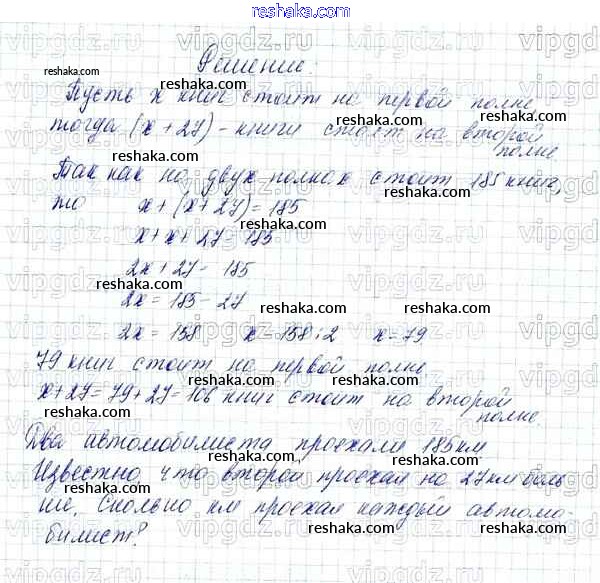 reshaka.com
Решение:
Пусть x книг стоит на первой полке,
тогда (x + 27) - книги стоят на второй
полке
Так как на двух полках стоит 185 книг,
то x + (x + 27) = 185
x + x + 27 = 185
2x + 27 = 185
2x = 185 - 27
2x = 158 x = 158 : 2 x = 79
79 книг стоит на первой полке
x + 27 = 79 + 27 = 106 книг стоит на второй
полке.
Два автомобилиста проехали 185 км
Известно, что второй проехал на 27 км боль
ше. Сколько км проехал каждый автомо-
билист?